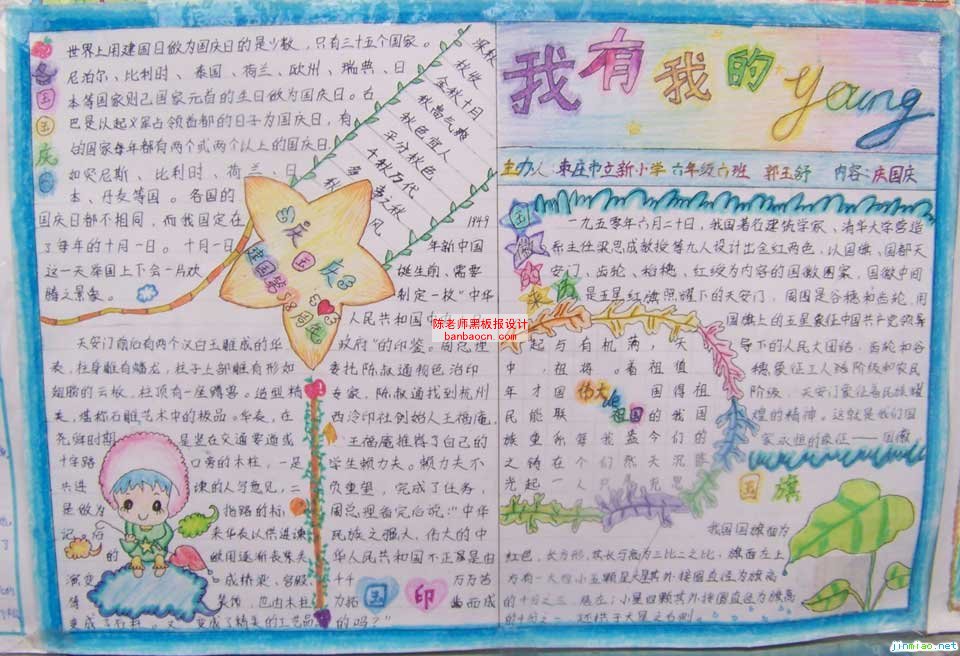 我有我的young
主办人:枣庄市立新小学 六年级六班 郭玉舒 内容:庆国庆
国庆
世界上用建国日做为国庆日的是少数,只有三十五个国家。
尼泊尔、比利时、泰国、荷兰、欧州、瑞典、日
本等国家则已国家元首的生日做为国庆日。古
巴是以起义军占领首都的日子为国庆日,有
的国家每年都有两个或两个以上的国庆日,
如突尼斯、比利时、荷兰、日
本、丹麦等国。各国的
国庆日都不相同,而我国定在
了每年的十月一日。十月一日
这一天举国上下会一片欢
腾之景象。
天安门前后有两个汉白玉雕成的华
表,柱身雕有蟠龙,柱子上部雕有形如
翅膀的云板,柱顶有一座蹲兽。造型精
美,堪称石雕艺术中的极品。华表,在
尧舜时期
是竖在交通要道或
十字路
口旁的木柱,一是
共进
谏的人写意见,二
是做为
指路的标
记,后
来华表以供进谏
的
做用逐渐丧失
演变
成桥梁、宫殿
等
装饰,也由木柱
变成了精美的工艺品
秋
金秋十月
秋高气爽
秋色宜人
平分秋色
千秋万代
多事之秋
风
庆国庆
建国第58周年
1949
年新中国
诞生前,需要
制定一枚“中华
人民共和国中央
政府”的印鉴。周总理
委托陈叔通物色治印
专家,陈叔通找到杭州
西泠印社创始人王福庵,
王福庵推荐了自己的
学生赖力夫。赖力夫不
负重望,完成了任务,
周总理看完后说:“中华
民族之强大,伟大的中
华人民共和国不正是由
千千
万万苦
力拓
出而成
的吗?”
国印
国徽的来历
一九五零年六月二十日,我国著名建筑学家、清华大学营造
系主任梁思成教授等九人设计出金红两色,以国旗、国都天
安门、齿轮、稻穗、红绶为内容的国徽图案,国徽中间
是五星红旗照耀下的天安门,周围是谷穗和齿轮,用
国旗上的五星象征中国共产党领导
导下的人民大团结,齿轮和谷
穗象征工人阶级和农民
阶级,天安门象征各民族耀
煌的精神。这就是我们国
家永恒的象征——国徽
伟大de祖国
国旗
我国国旗面为
红色,长方形,其长与高为三比二之比,旗面左上
方有一大四小五颗星,大星其外接圆直径为旗高
的十分之三,居左;小星四颗其外接圆直径为旗高
的十分之一,环拱于大星之右侧。
陈老师黑板报设计
banbaocn.com
jinmiao.net